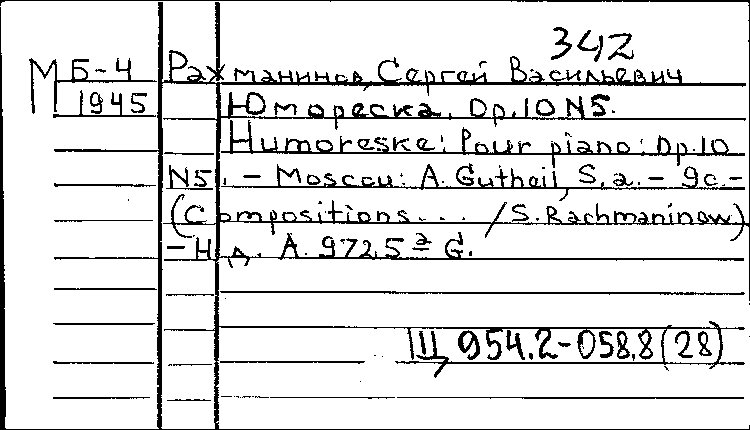 342
М Б-4 Рахманинов, Сергей Васильевич
1945 Юмореска. Op.10 N5.
Humoreske: Pour piano: Op.10
N5. - Moscou: A. Gutheil, S.a. - 9c. -
(Compositions... / S. Rachmaninow)
- Н.д. A. 9725 a G.
Щ 954.2-058.8(28)